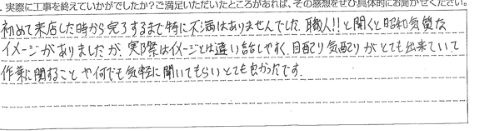 ．実際に工事を終えていかがでしたか？ご満足いただいたところがあれば、その感想をぜひ具体的にお聞かせください。
初めて来店した時から完了するまで特に不満はありませんでした。職人!!と聞くと昭和気質な
イメージがありましたが、実際はイメージとは違い話しやすく、目配り気配りがとても出来ていて
作業に関することや何でも気軽に聞いてもらいとても良かったです。